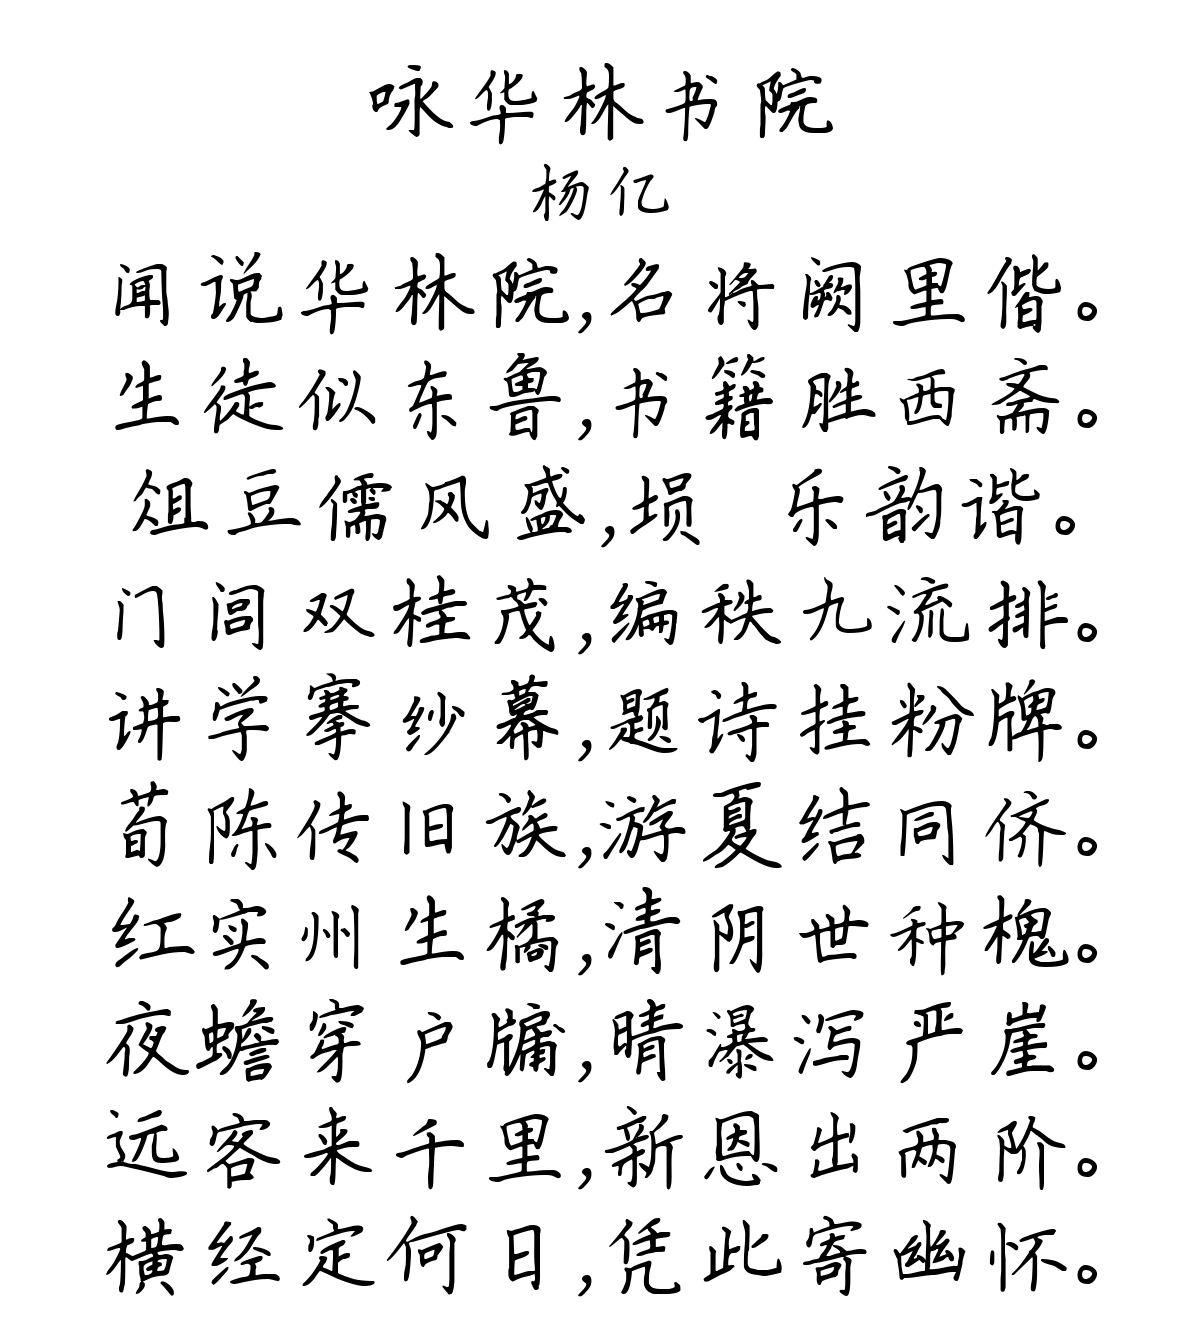 咏华林书院
杨亿
闻说华林院,名将阙里偕。
生徒似东鲁,书籍胜西斋。
俎豆儒风盛,埙 乐韵谐。
门闾双桂茂,编秩九流排。
讲学搴纱幕,题诗挂粉牌。
荀陈传旧族,游夏结同侪。
红实州生橘,清阴世种槐。
夜蟾穿户牖,晴瀑泻严崖。
远客来千里,新恩出两阶。
横经定何日,凭此寄幽怀。